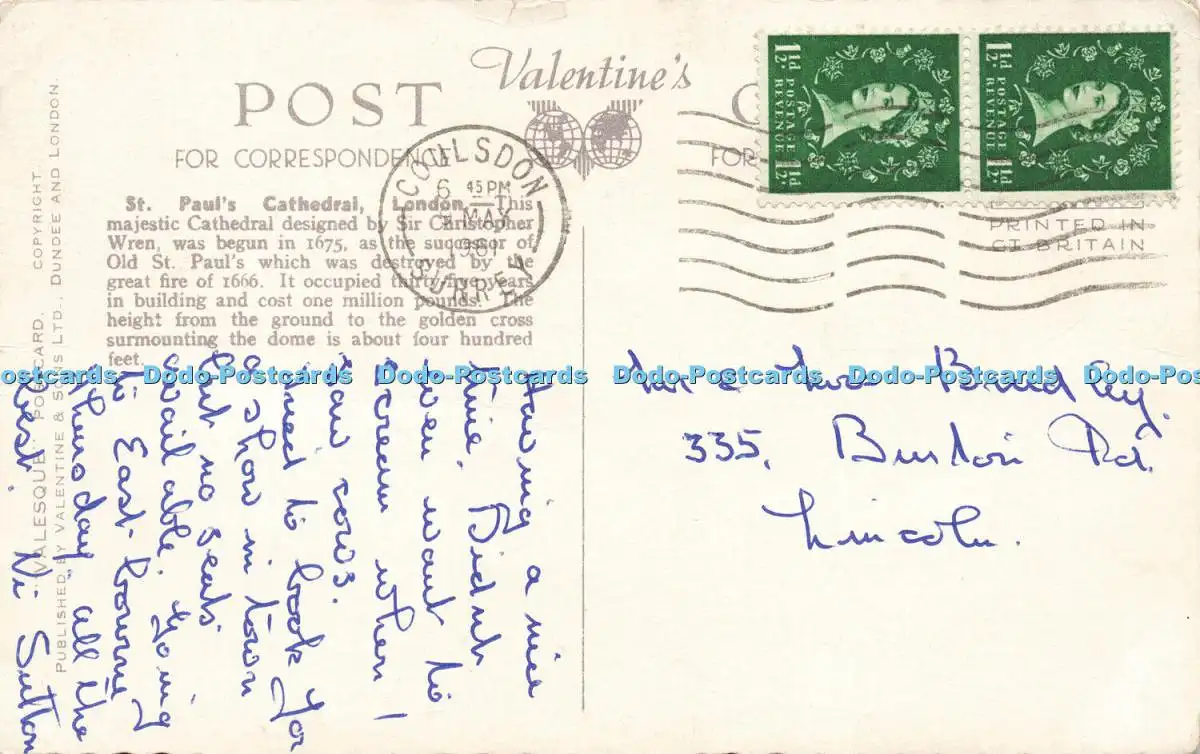 POST
Valentine's
FOR CORRESPONDENCE
St. Paul's Cathedral, London. This
majestic Cathedral designed by Sir Christopher
Wren, was begun in 1675, as the successor of
Old St. Paul's which was destroyed by the
great fire of 1666. It occupied thirty-five years
in building and cost one million pounds. The
height from the ground to the golden cross
surmounting the dome is about four hundred
feet.
COULSDON
6 45 PM
MAY
SURREY
1½d POSTAGE REVENUE 1½d
1½d POSTAGE REVENUE 1½d
PRINTED IN
GT. BRITAIN
"VALESQUE" POSTCARD. COPYRIGHT.
PUBLISHED BY VALENTINE & SONS LTD., DUNDEE AND LONDON.
Having a nice
time. Didnt
even want to
scream when I
saw cows.
Tried to book for
a show in town
but no seats
available. Going
to East-bourne
"Thursday" all the
best. Sutton
Mr & Mrs
335, Rd.
Lincoln.
Dodo-Postcards Dodo-Postcards Dodo-Postcards Dodo-Postcards Dodo-Postcards Dodo-Postcards